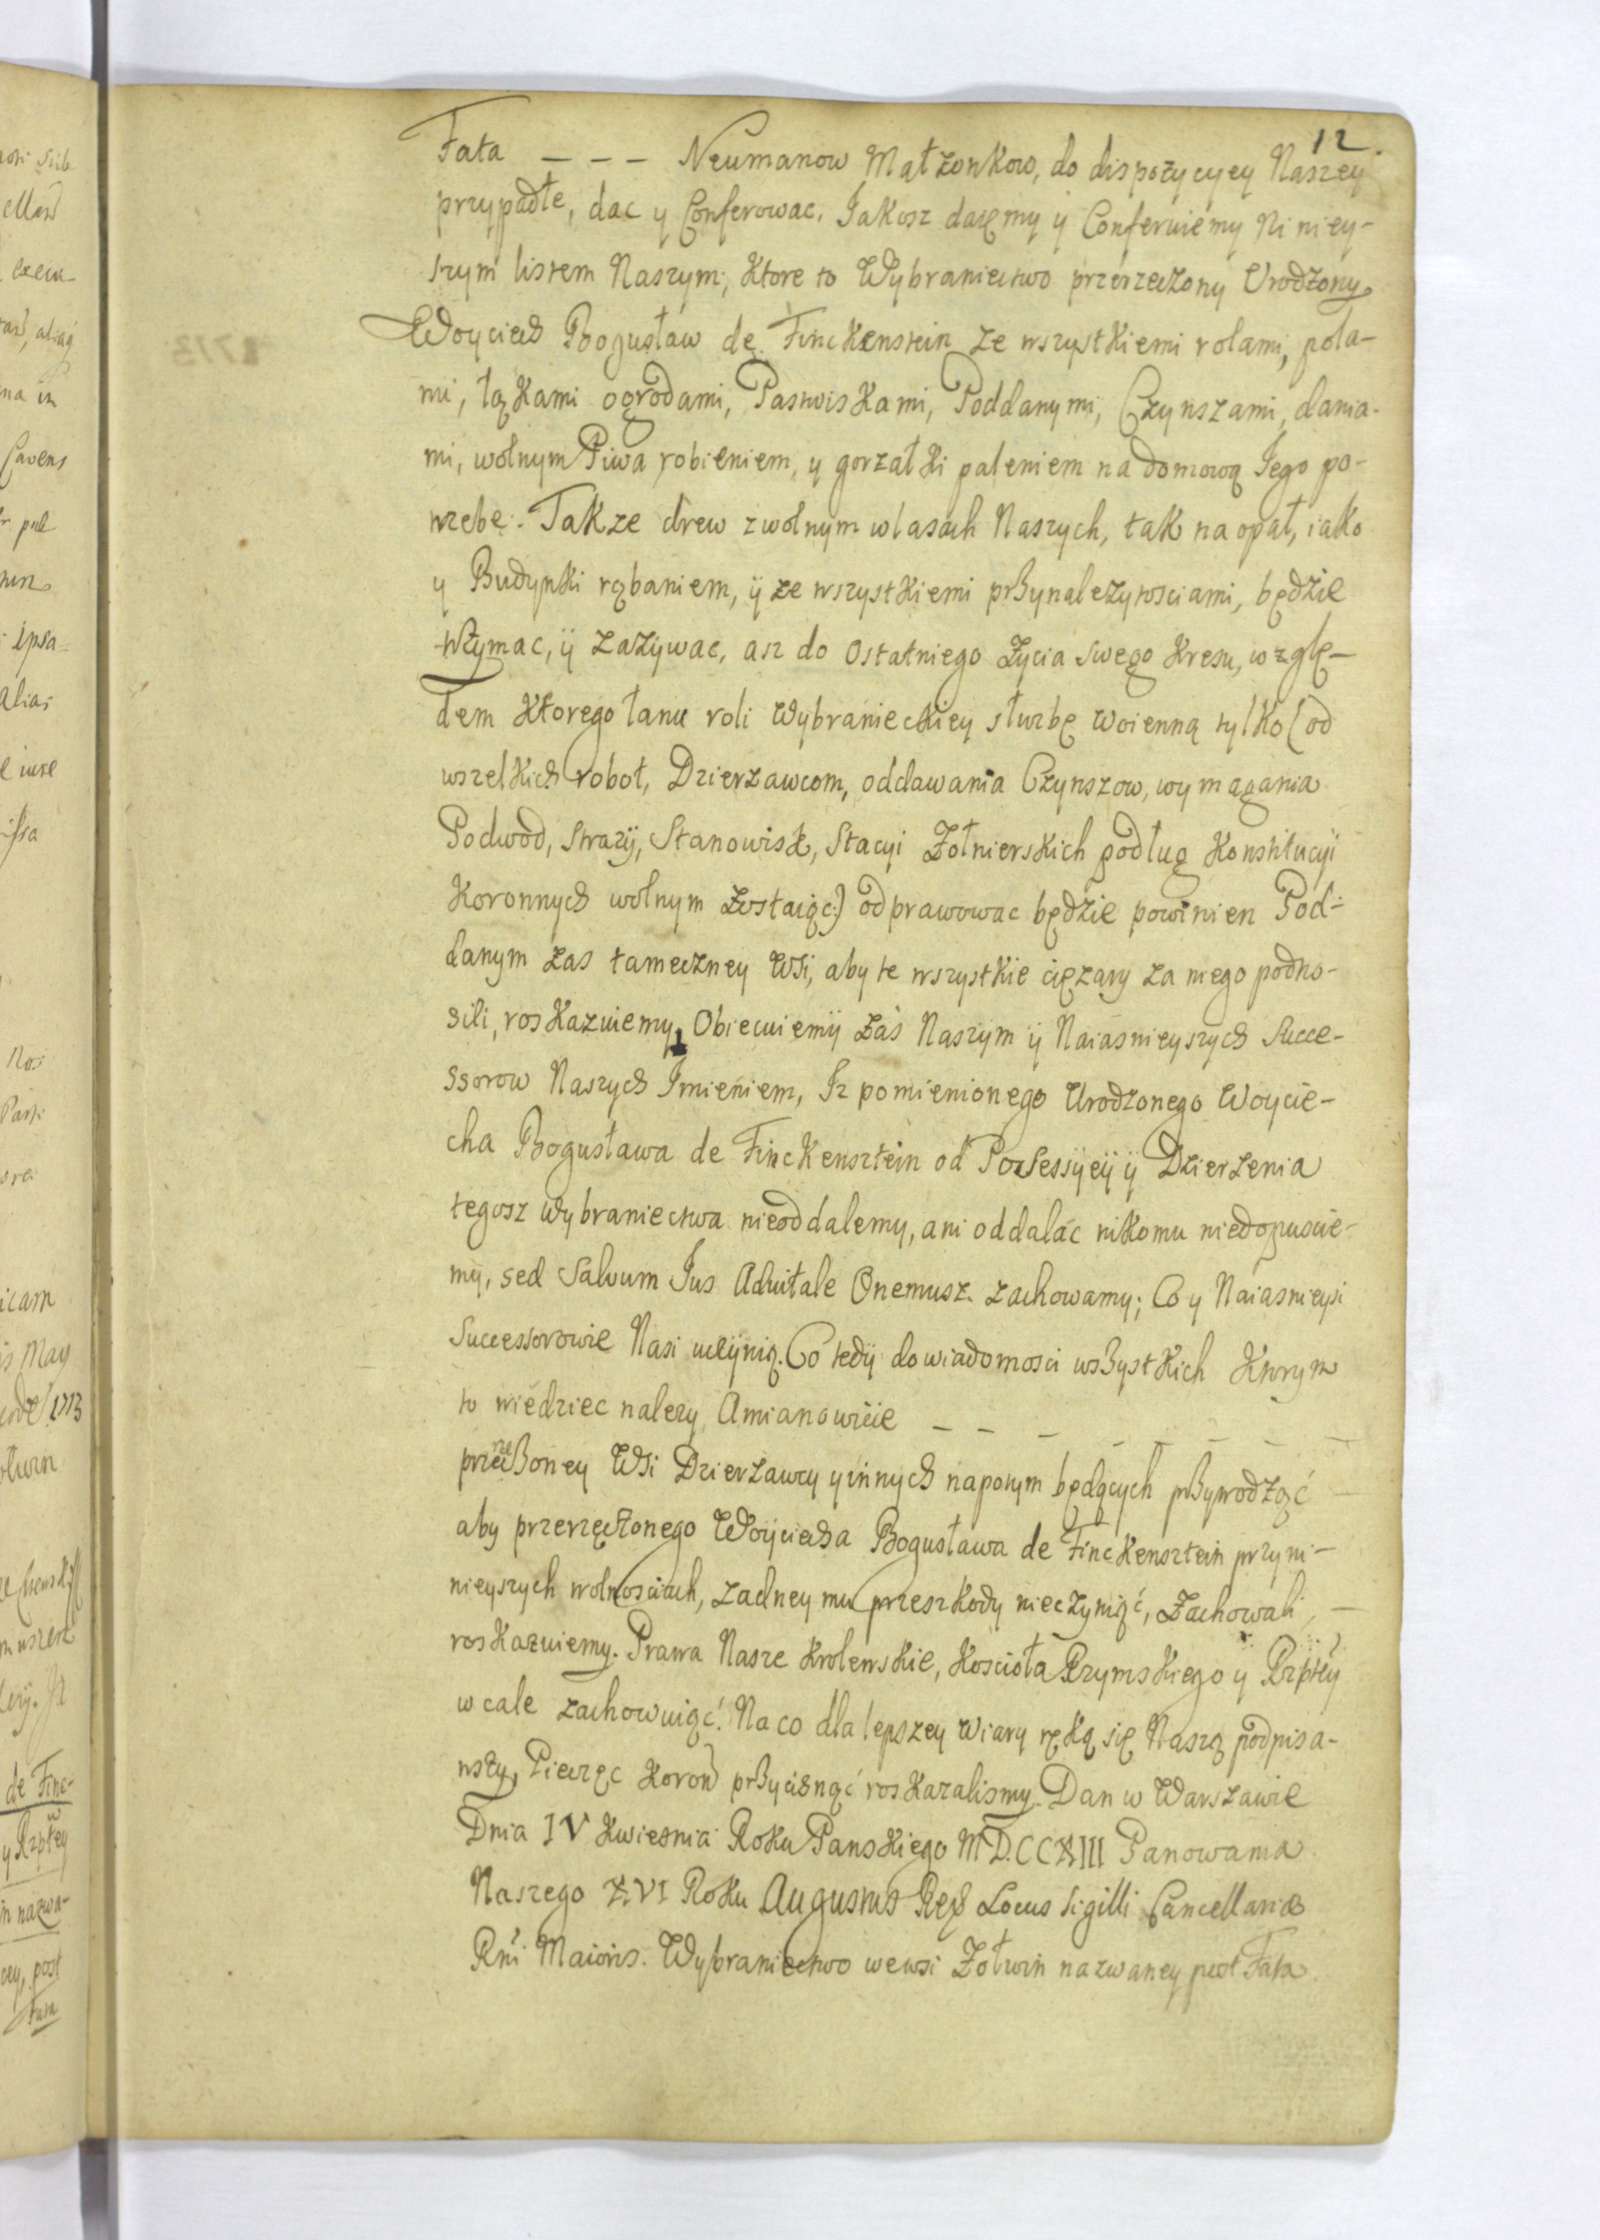 12.
Fata _ _ _ Neumanow Małzonkow, do dispozycyey Naszey
przypadłe, dac y Conferowac. Jakosz daięmy y Conferuiemy Niniey-
szym listem Naszym; Ktore to Wybraniectwo przerzeczony Urodzony
Woyciech Bogusław de Finckenstein ze wszystkiemi rolami, pola-
mi, łąkami ogrodami, Pastwiskami, Poddanymi, Czynszami, dania-
mi, wolnym Piwa robieniem, y gorzałki paleniem na domową Jego po-
trzebę. Takze drew z wolnym w lasach Naszych, tak na opał, iako
y Budynki rąbaniem, ÿ ze wszystkiemi przynalezytosciami, będzie
trzymac, ÿ zazywac, asz do ostatniego Zycia swego Kresu, wzglę-
dem Ktorego łanu roli Wybranieckiey słuzbę woienną tylko (od
wszelkich robot, Dzierzawcom, oddawania Czynszow, wymagania
Podwod, Strazÿ, Stanowisk, Stacyi Zołnierskich podług Konstitucyi
Koronnych wolnym zostaiąc:) odprawowac będzie powinien Pod-
danym zas tameczney Wsi, aby te wszystkie cięzary za niego podno-
sili, roskazuiemy. Obiecuiemÿ zas Naszym ÿ Naiasnieyszych Succe-
ssorow Naszych Imieniem, Iz pomienionego Urodzonego Woycie-
cha Bogusława de Finckensztein od Possessÿeÿ ÿ Dzierzenia
tegosz Wybraniectwa nieoddalemy, ani oddalac nikomu niedopuscie-
my, sed Salvum Jus Advitale Onemusz zachowamy; Co y Naiasnieysi
Successorowie Nasi uczÿnią. Co tedÿ do wiadomosci wszystkich Ktorym
to wiedziec nalezy Amianowicie _ _ _ _ _ _ _ _
przerzeczoney Wsi Dzierzawcy y innych napotym będących przywodząc
aby przerzęczonego Woÿciecha Bogusława de Finckensztein przy ni-
nieyszych wolnosciach, zadney mu przeszkody nieczyniąc, Zachowali,
roskazuiemy. Prawa Nasze Krolewskie, Koscioła Rzymskiego ÿ Rzpłtey
w cale zachowuiąc. Na co dla lepszey wiary ręką się Naszą podpisa-
wszy, Pieczęc Koron przycisnąc roskazalismy. Dan w Warszawie
Dnia IV Kwietnia Roku Panskiego MDCCXIII Panowania
Naszego XVI Roku Augustus Rex Locus Sigilli Cancellariæ
Rni Maioris. Wybraniectwo we wsi Zołwin nazwaney post Fata